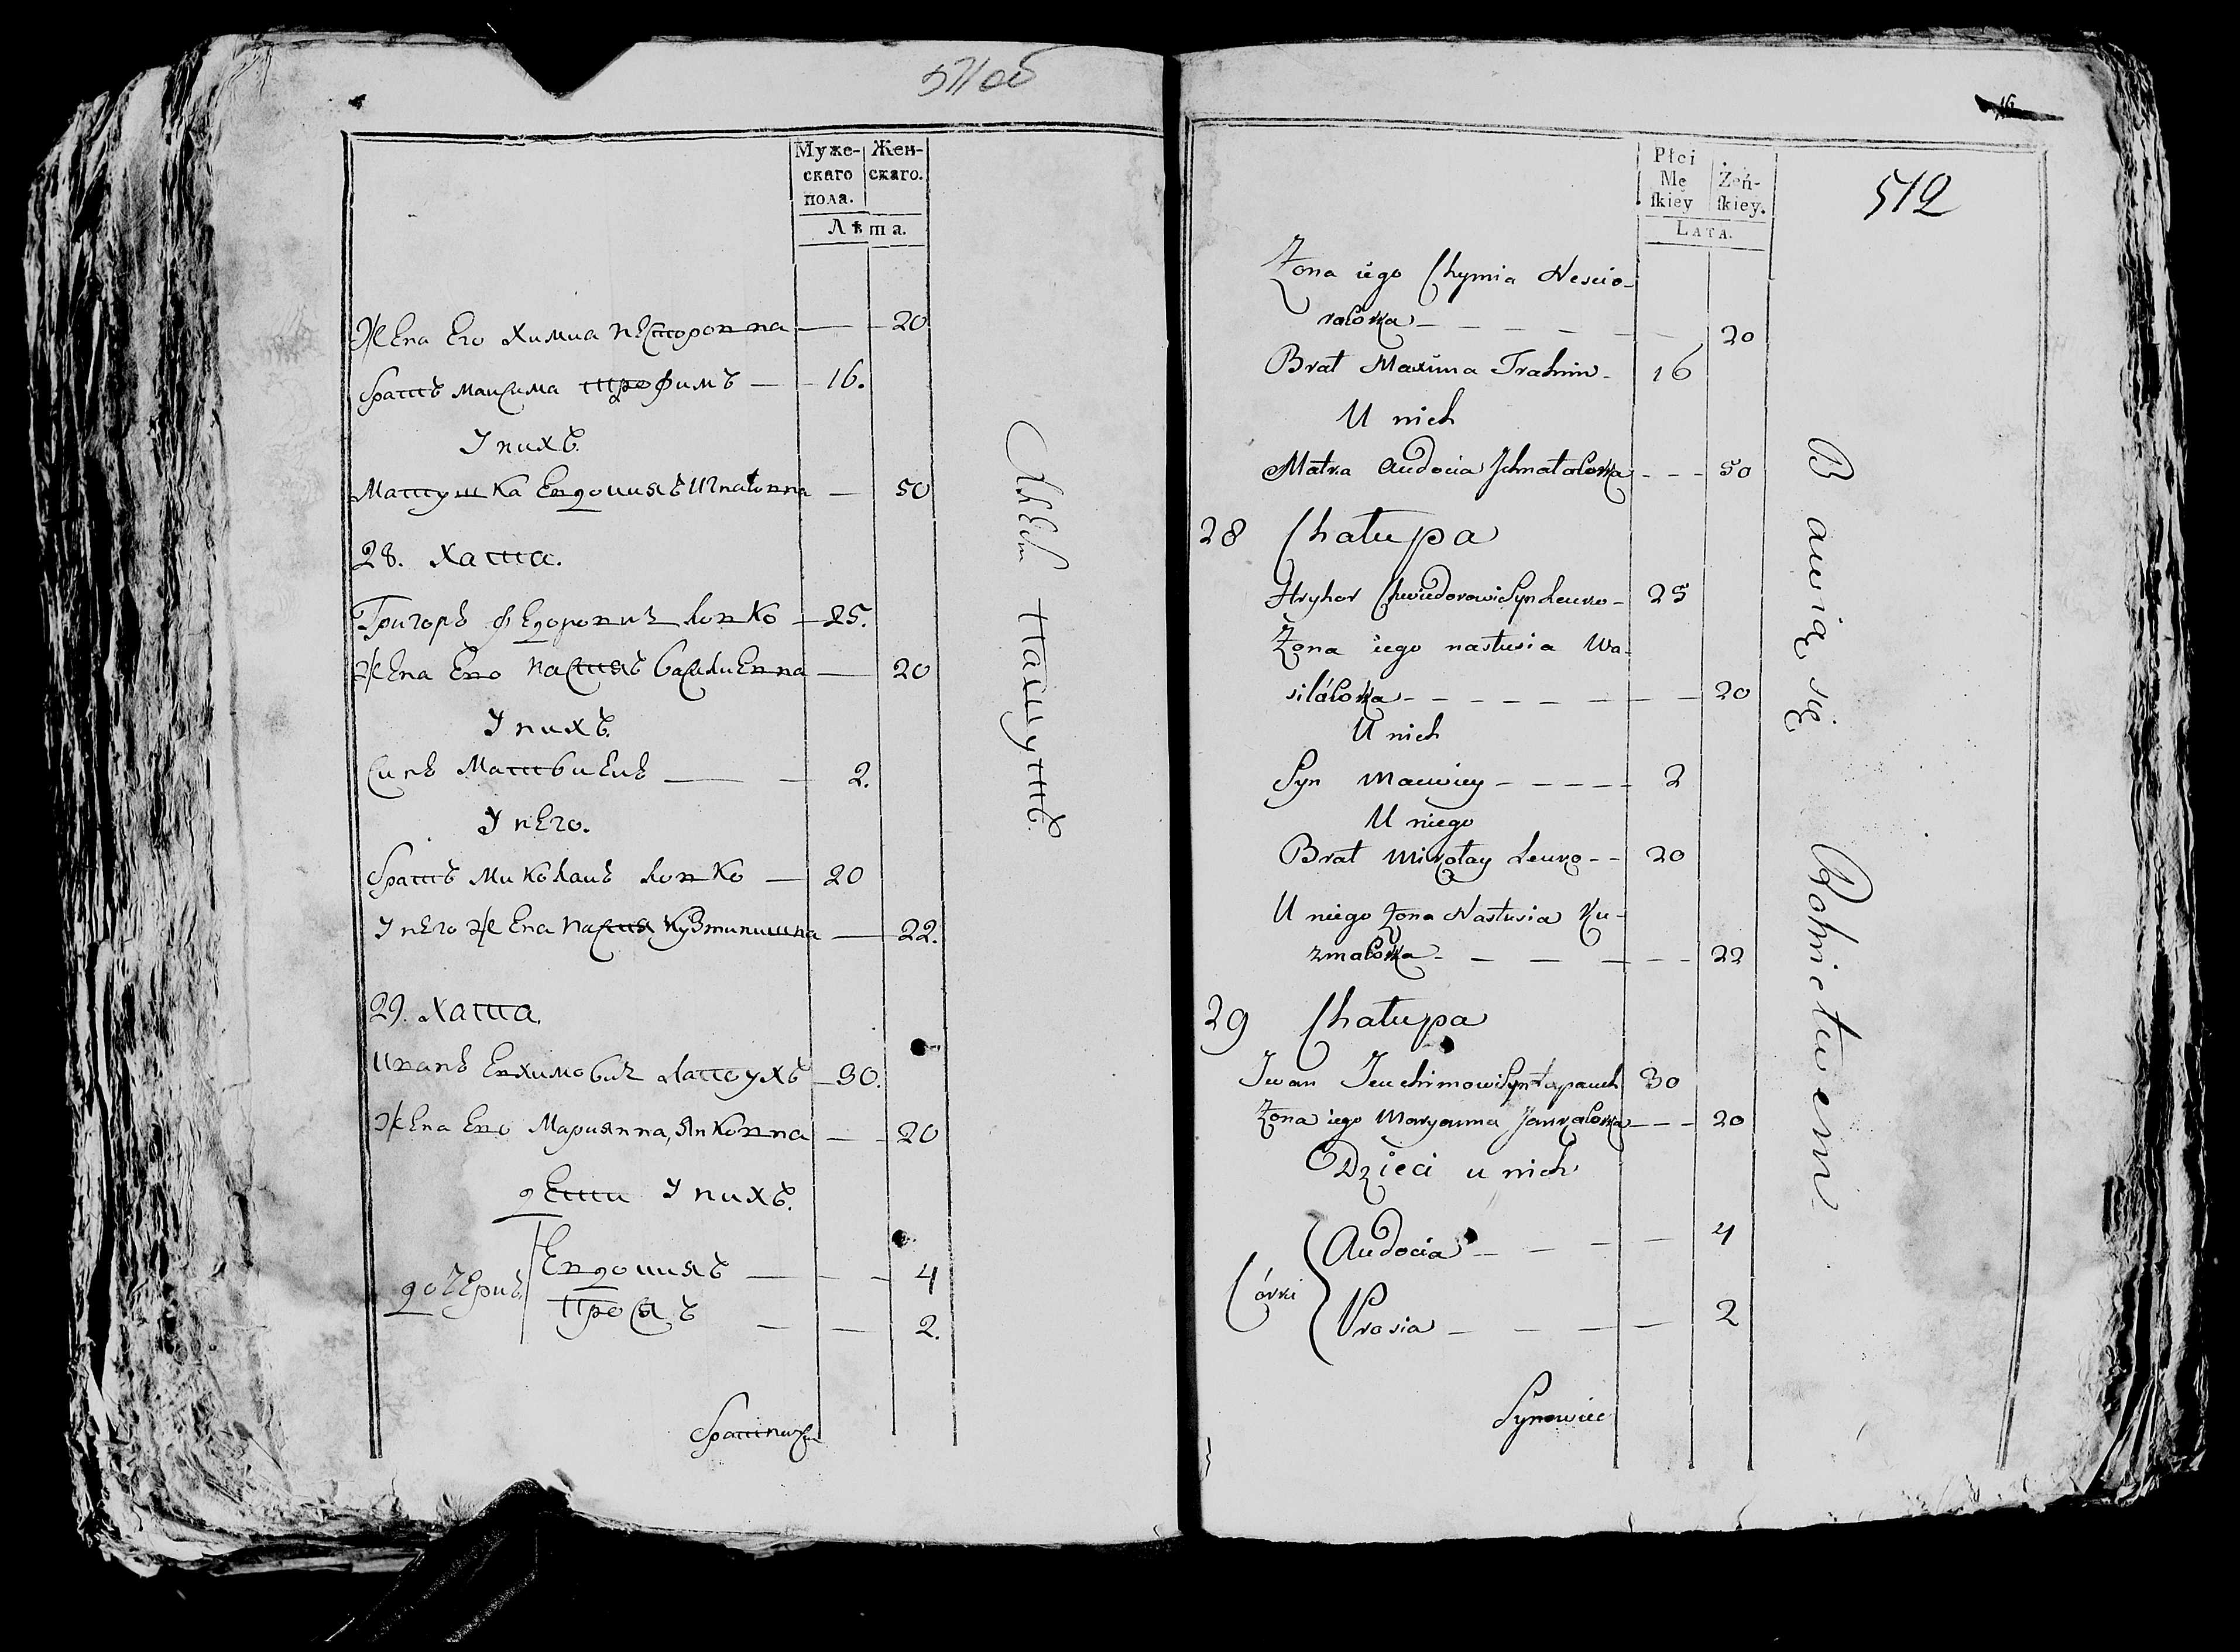 511об
Муже- Жен-
скаго скаго.
пола.
Лѣта.
Жена Его Химиа Несторовна — 20
братъ Максима Трофимъ — 16.
У нихъ.
Матушка Евдокияъ Игнатовна — 50
28. Хата.
Григоръ Федоровичъ Ловко — 25.
Жена Его Настияъ Василиевна — 20
У нихъ.
Синъ Матвиеиъ — 2.
У нЕго.
братъ Миколаиъ Ловко — 20
У нЕго жЕна Настия Кузминишна — 22.
29. Хата.
Иванъ Евхимовичъ Лапоухъ — 30.
Жена Его Мариянна, Янковна — 20
дЕти У нихъ.
Евдокияъ — 4
дочЕриъ
Просяъ — 2.
Хлебо Пашутъ.
16
512
Płci
Mę Żeń-
ſkiey ſkiey.
LATA.
Żona iego Chymia Nescio-
rałowka — 20
Brat Maxima Trahim - 16
U nich
Matka Audocia Jhnatałowka - - - 50
28 Chałupa
Hryhor Chwiedorowi Syn Leuko - 25
Żona iego nastusia Wa-
silałowka - - - 20
U nich
Syn Maćwiey - - - - - 2
U niego
Brat Mikołay Leuko - - 20
U niego Żona Nastusia Ku-
zmałowka - - - 22
29 Chałupa
Iwan Jeuchimowi Syn Łapauch 30
Żona iego Maryanna Jankałowka - - - 20
Dzieci u nich
Audocia - - - 4
Córki
Prosia - - - 2
Synowiec
Bawią się Rolnictwem